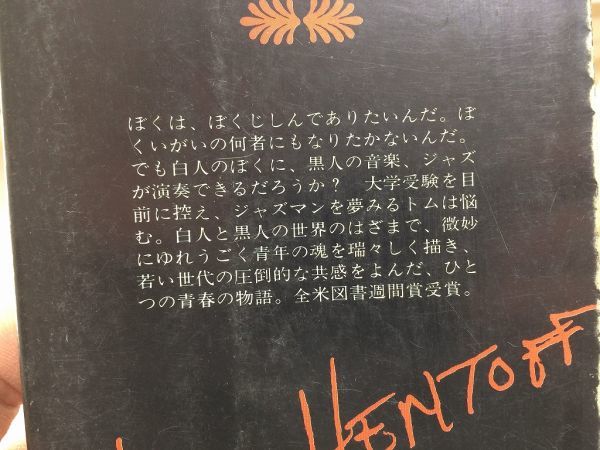 ぼくは、ぼくじしんでありたいんだ。ぼ
くいがいの何者にもなりたかないんだ。
でも白人のぼくに、黒人の音楽、ジャズ
が演奏できるだろうか？　大学受験を目
前に控え、ジャズマンを夢みるトムは悩
む。白人と黒人の世界のはざまで、微妙
にゆれうごく青年の魂を瑞々しく描き、
若い世代の圧倒的な共感をよんだ、ひと
つの青春の物語。全米図書週間賞受賞。
HENTOFF